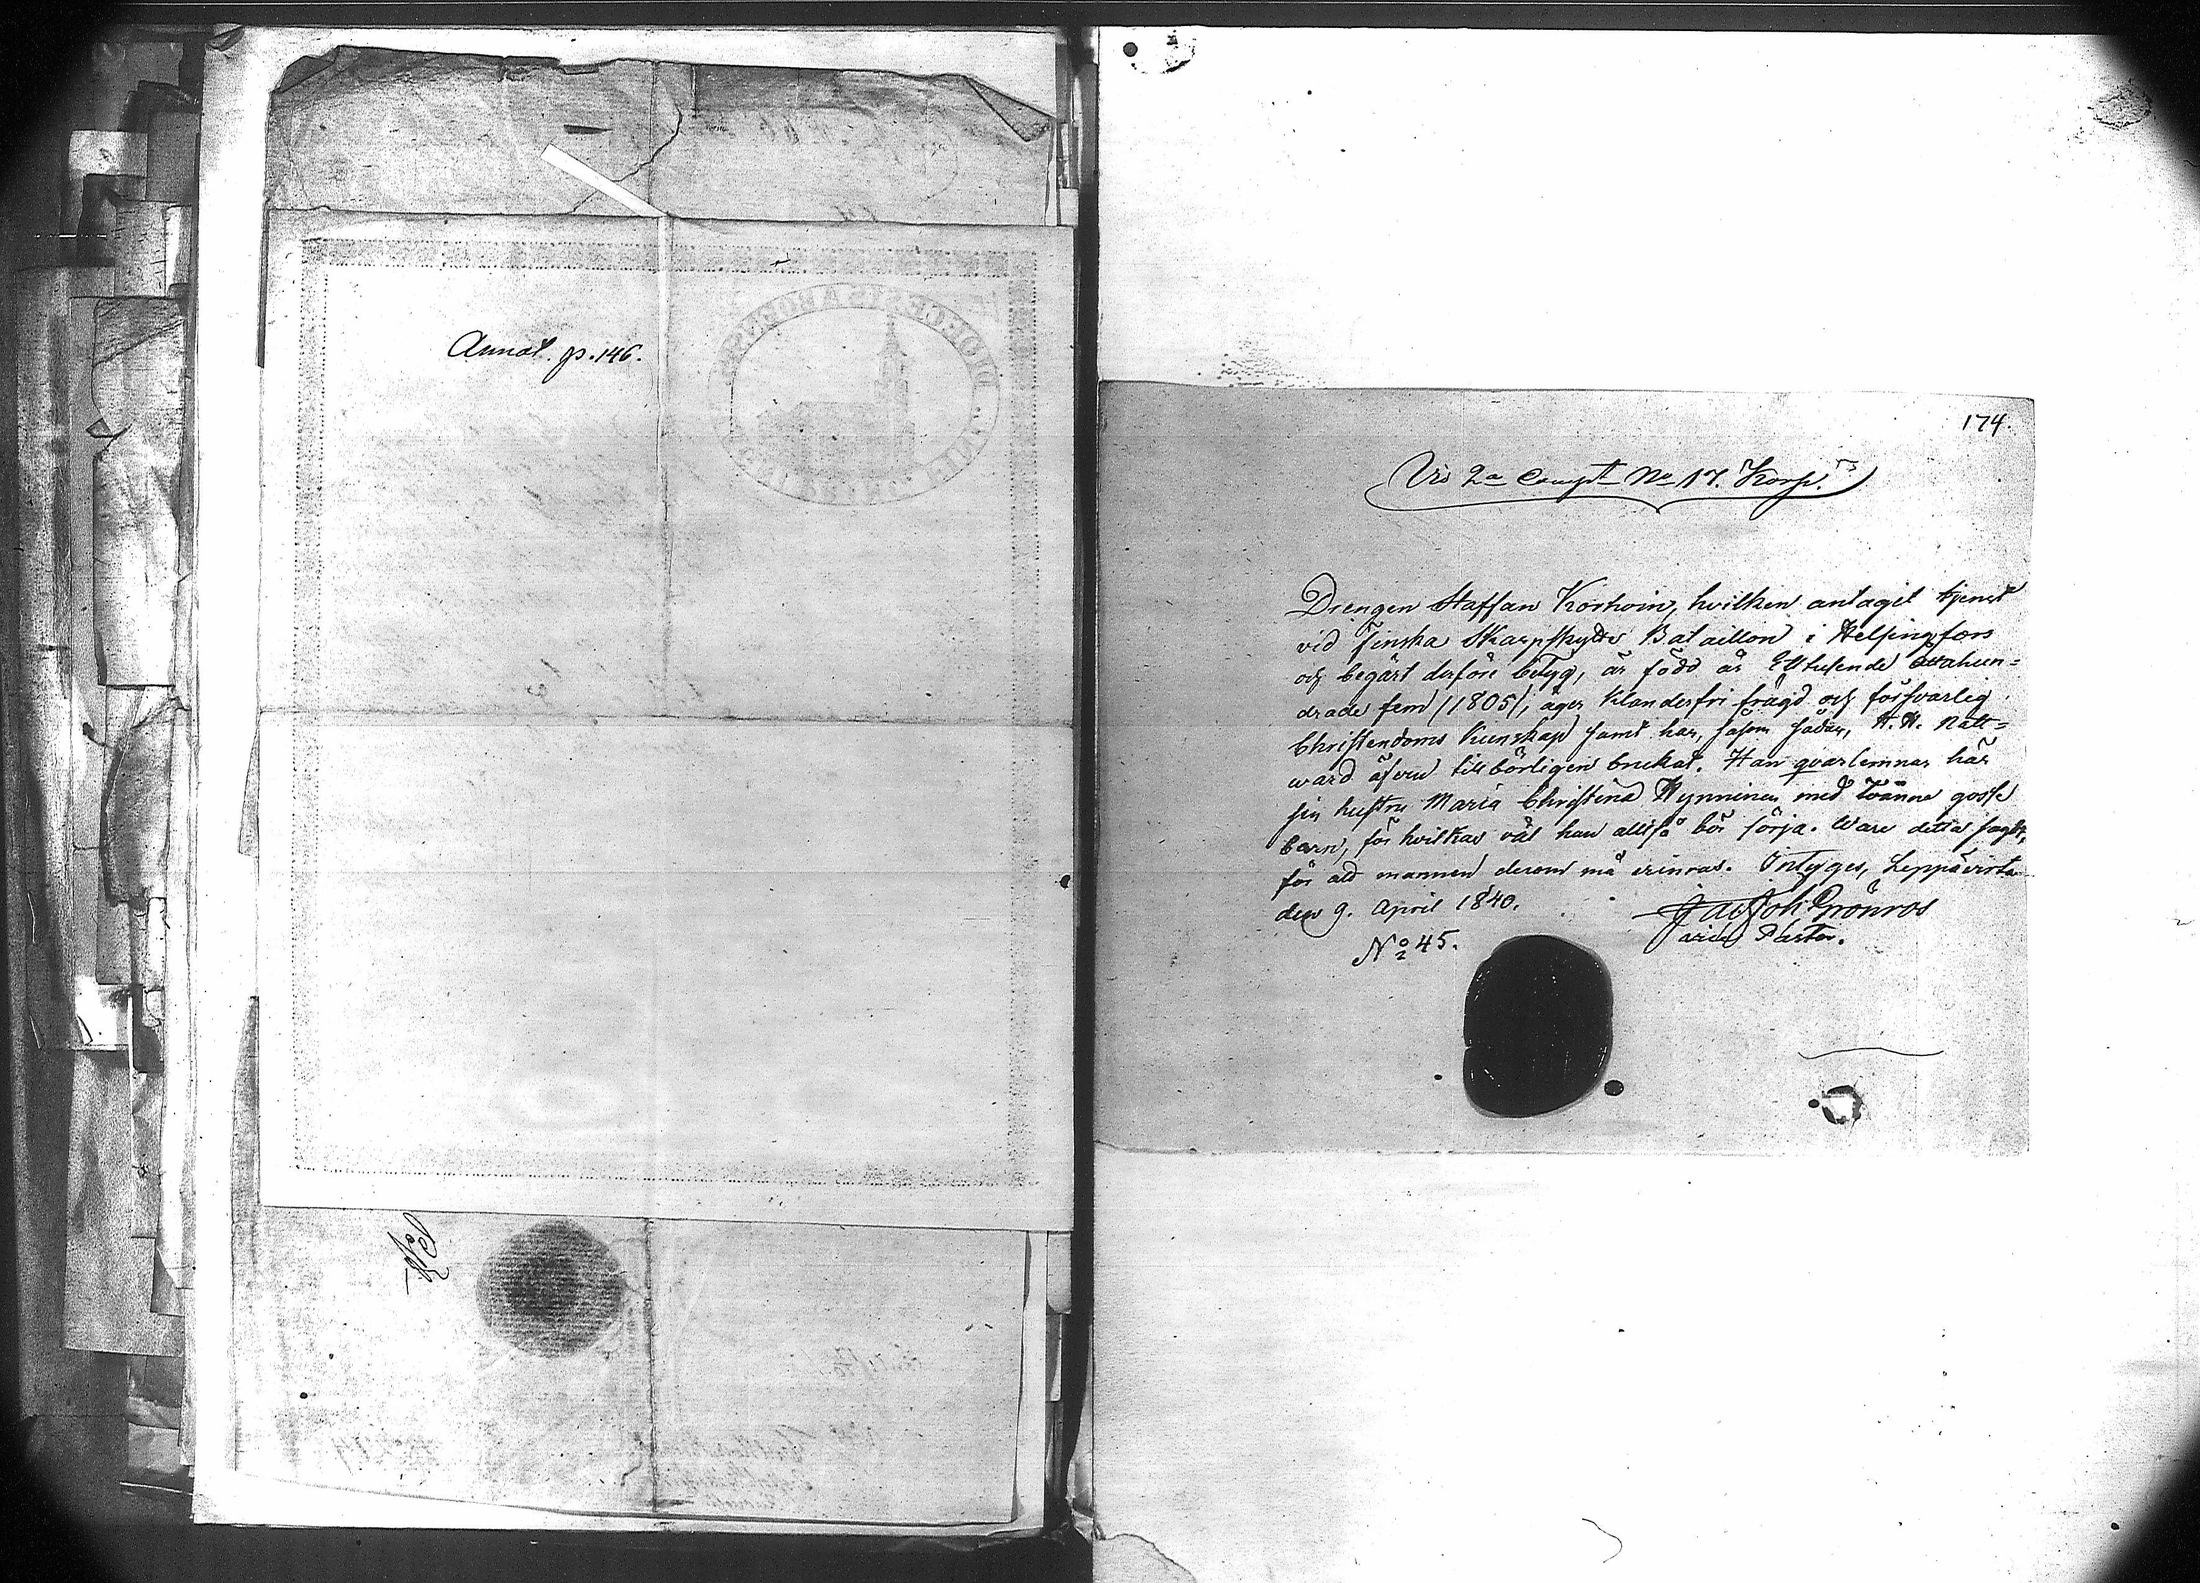 Annot. p. 146.
174.
Vid 2a Compt No 17. Korh.
Drengen Staffan Korhoin, hvilken antagit tjenst
vid Finska Skarpskytte Bataillon i Helsingfors
och begärt derföre betyg, är född år Ettusende åttahun=
drade fem /1805/, äger klanderfri frägd och försvarlig
Christendoms kunskap samt har, såsom sådan, H. H. Natt=
ward äfven tillbörligen brukat. Han qvarlemnar här
sin hustru Maria Christina Hynninen med tvänne gosse
barn, för hvilkas väl han alltså bör sörja. Ware detta sagdt,
för att mannen derom må erinras. Intyges, Leppävirta
den 9. April 1840.
Joh. Grönroos
Pastor.
No 45.